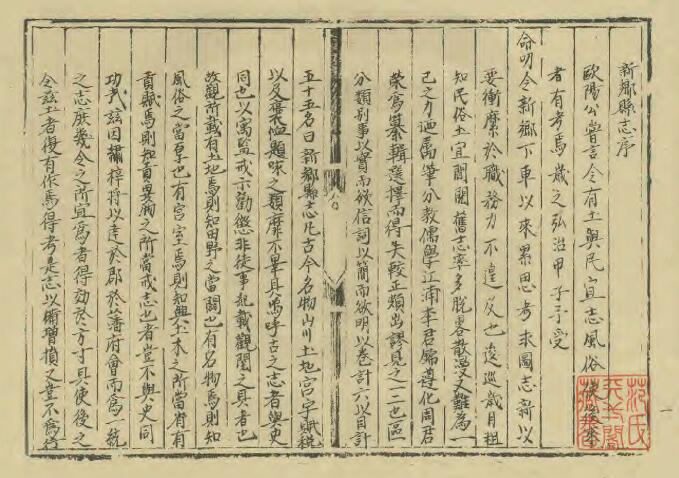 新鄉縣志序
歐陽公嘗言令有土與民宜志風俗
者有考焉歲之弘治甲子予受
命明令新鄉下車以來累思考求圖志新以
要衝縻於職務力不遑及也逡巡歲月粗
知民俗土宜間閱舊志率多脫畧散漫又難為一
己之力迺屬筆分教儒學江浦李君錦遵化周君
榮為纂輯選擇而得失較正類出謬見之一二也區
分類別事以實而欲信詞以簡而欲明以卷計六以目計
五十五名曰新鄉縣志凡古今名物山川土地宮室賦稅
以及褒恤題咏之類靡不畢具嗚呼古之志者與史
同也以寓監戒示勸懲非徒事紀載觀聞之具者也
故觀所載有土地焉則知田野之當闢也有名物焉則知
風俗之當厚也有宮室焉則知興土木之所當有有
貢賦焉則知之所當戒志也者豈不與史同
功哉茲因繡梓將以達於郡於藩府會而為一統
之志庶幾令之所宜為者得効於方寸具使後之
令茲土者復有作焉得考是志以衡增損又豈不為
范氏天一閣藏書